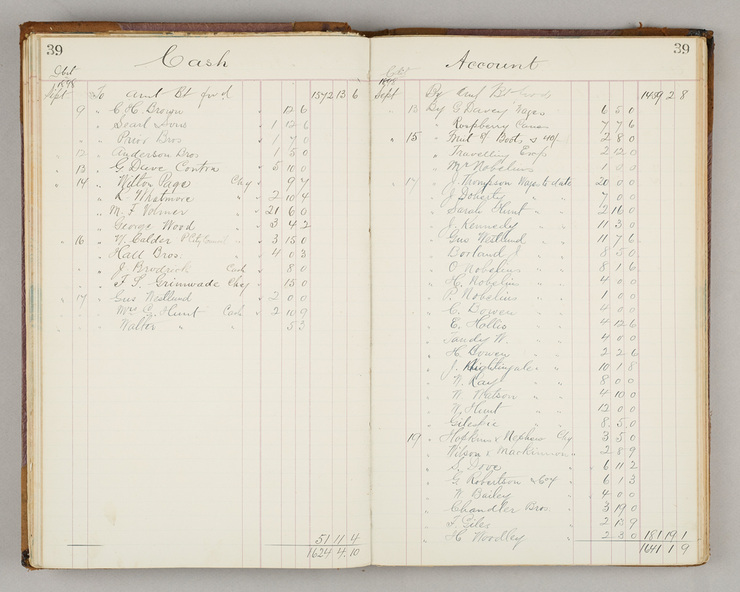 39
Cash
1898
Sept To amt Bt fwd 1572 13 6
9 " C. H. Brown 12 6
" Searl & Sons 1 12 6
" Prior Bros 1 7 0
12 " Anderson Bros 1 5 0
13 " G Dave Contra 5 10 0
14 " Wilton Page Chq 9 7
" L Whatmore " 2 10 4
" M. F. Volmer " 21 6 0
" George Wood " 3 4 2
16 " W. Calder 3 15 0
" Hall Bros. 4 0 3
" J. Brodrick Cash 8 0
" F. S. Grimwade Chq 15 0
17 " Gus Westlund 2 0 0
" Mrs C. Hunt Cash 2 10 9
" Walter " 5 3
51 11 4
1624 4 10
39
Account
1898
Sept By amt Bt fwd 1459 2 8
13 By G Davey Wages 6 5 0
" Raspberry Canes 7 7 6
15 " 2 8 0
" Travelling Exps 2 12 0
" Mr Nobelius
17 " J. Thompson Wages to date 20 0 0
" J. Doherty " 7 0 0
" Sarah Hunt " 2 16 0
" J. Kennedy " 11 3 0
" Gus Westlund " 11 7 6
" Borland J " 8 5 0
" O Nobelius " 8 1 6
" H. Nobelius " 4 0 0
" P. Nobelius " 1 0 0
" C. Bowen " 4 0 0
" E. Hollis " 4 12 6
" Tandy W. " 4 0 0
" H. Bowen " 2 2 6
" J. Nightingale " 10 1 8
" W. Kay " 8 0 0
" W Watson " 4 10 0
" W. Hunt " 12 0 0
" Gilespie " 8 5 0
19 " Hopkins & Nephew Chq 3 5 0
" Wilson & Mackinnon " 2 8 9
" S. Dove " 6 11 2
" G Robertson & Coy " 6 1 3
" W Bailey " 4 0 0
" Chandler Bros " 3 19 0
" F. Giles " 2 19 9
" H Woodley " 2 3 0 181 19 1
1641 1 9